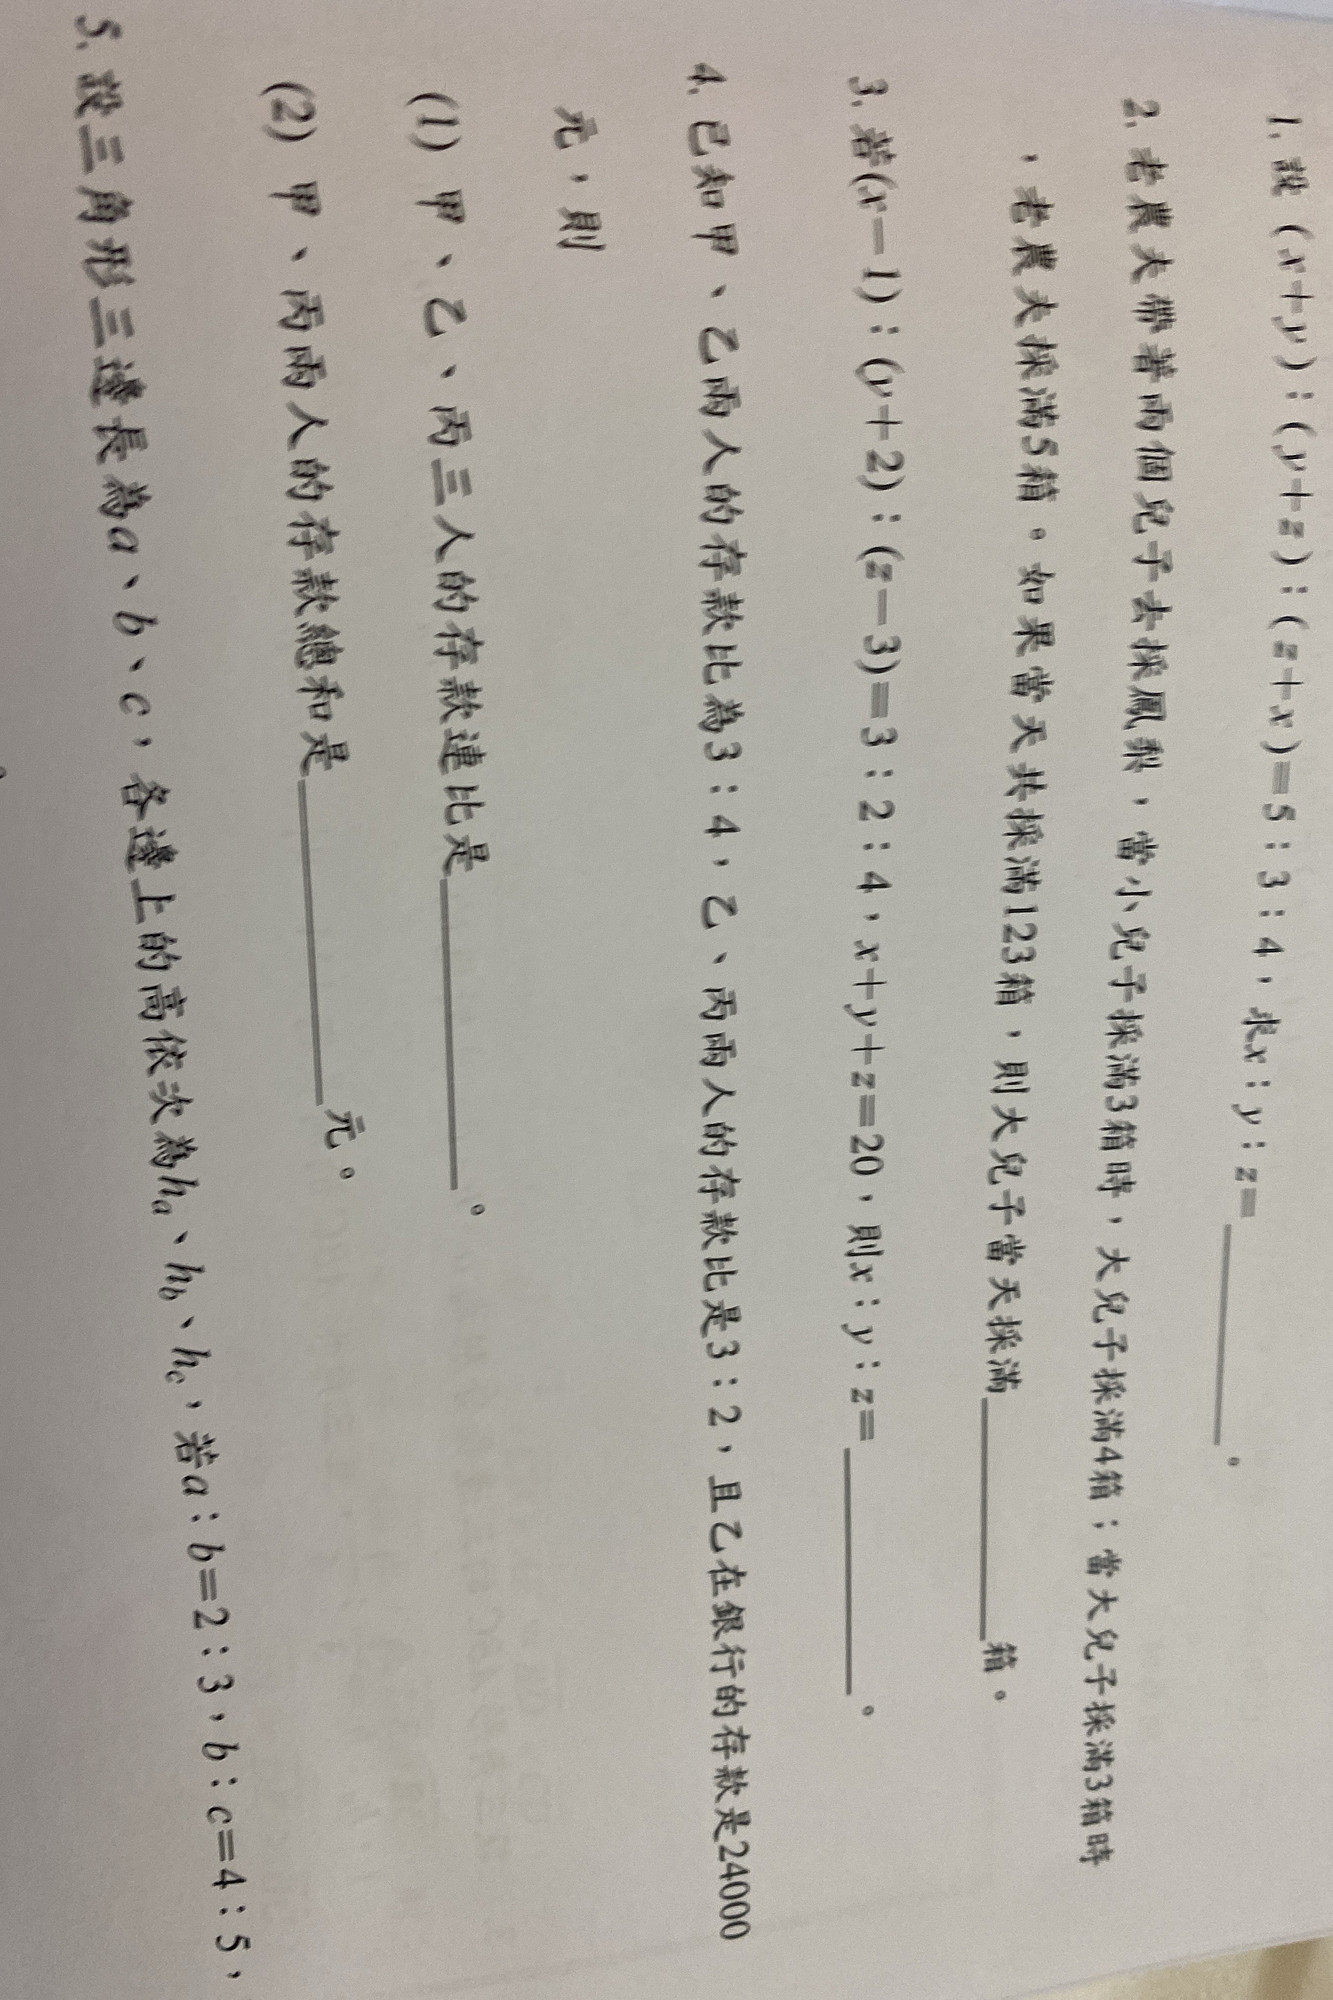 1. 設（x＋y）：（y＋z）：（z＋x）＝5：3：4，求x：y：z＝________。
2. 老農夫帶著兩個兒子去採鳳梨，當小兒子採滿3箱時，大兒子採滿4箱；當大兒子採滿3箱時
，老農夫採滿5箱。如果當天共採滿123箱，則大兒子當天採滿________箱。
3. 若(x－1)：(y＋2)：(z－3)＝3：2：4，x＋y＋z＝20，則x：y：z＝________。
4. 已知甲、乙兩人的存款比為3：4，乙、丙兩人的存款比是3：2，且乙在銀行的存款是24000
元，則
(1) 甲、乙、丙三人的存款連比是________。
(2) 甲、丙兩人的存款總和是________元。
5. 設三角形三邊長為a、b、c，各邊上的高依次為hₐ、h_b、h_c，若a：b＝2：3，b：c＝4：5，